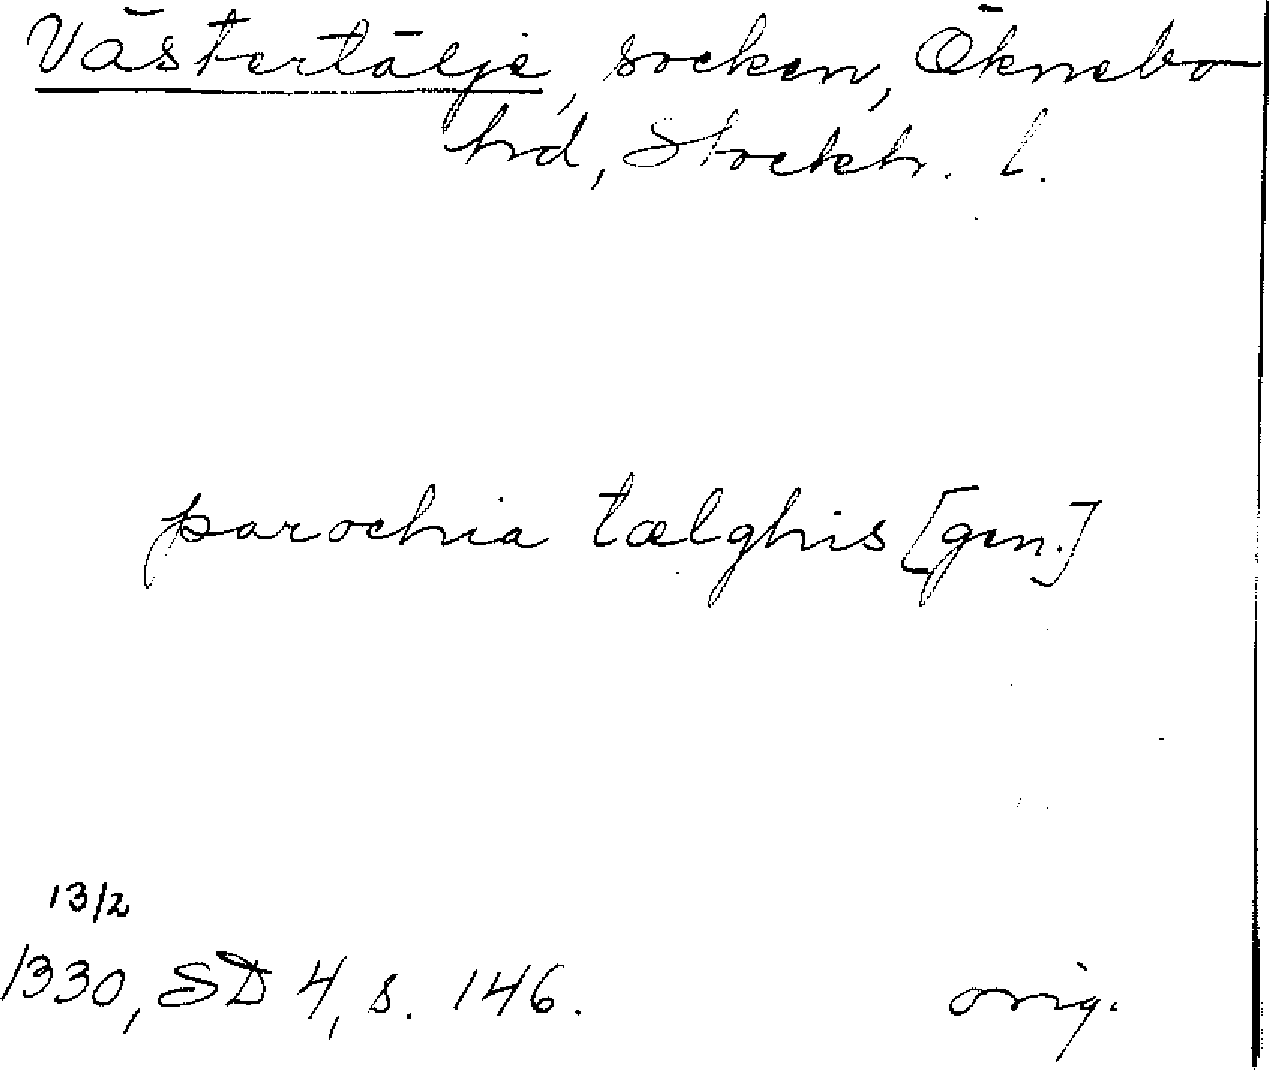 Västertälje, socken, Öknebo
hrd, Stockh. l.
parochia tælghis [gen.]
13/2
1330, SD 4, s. 146.
orig.